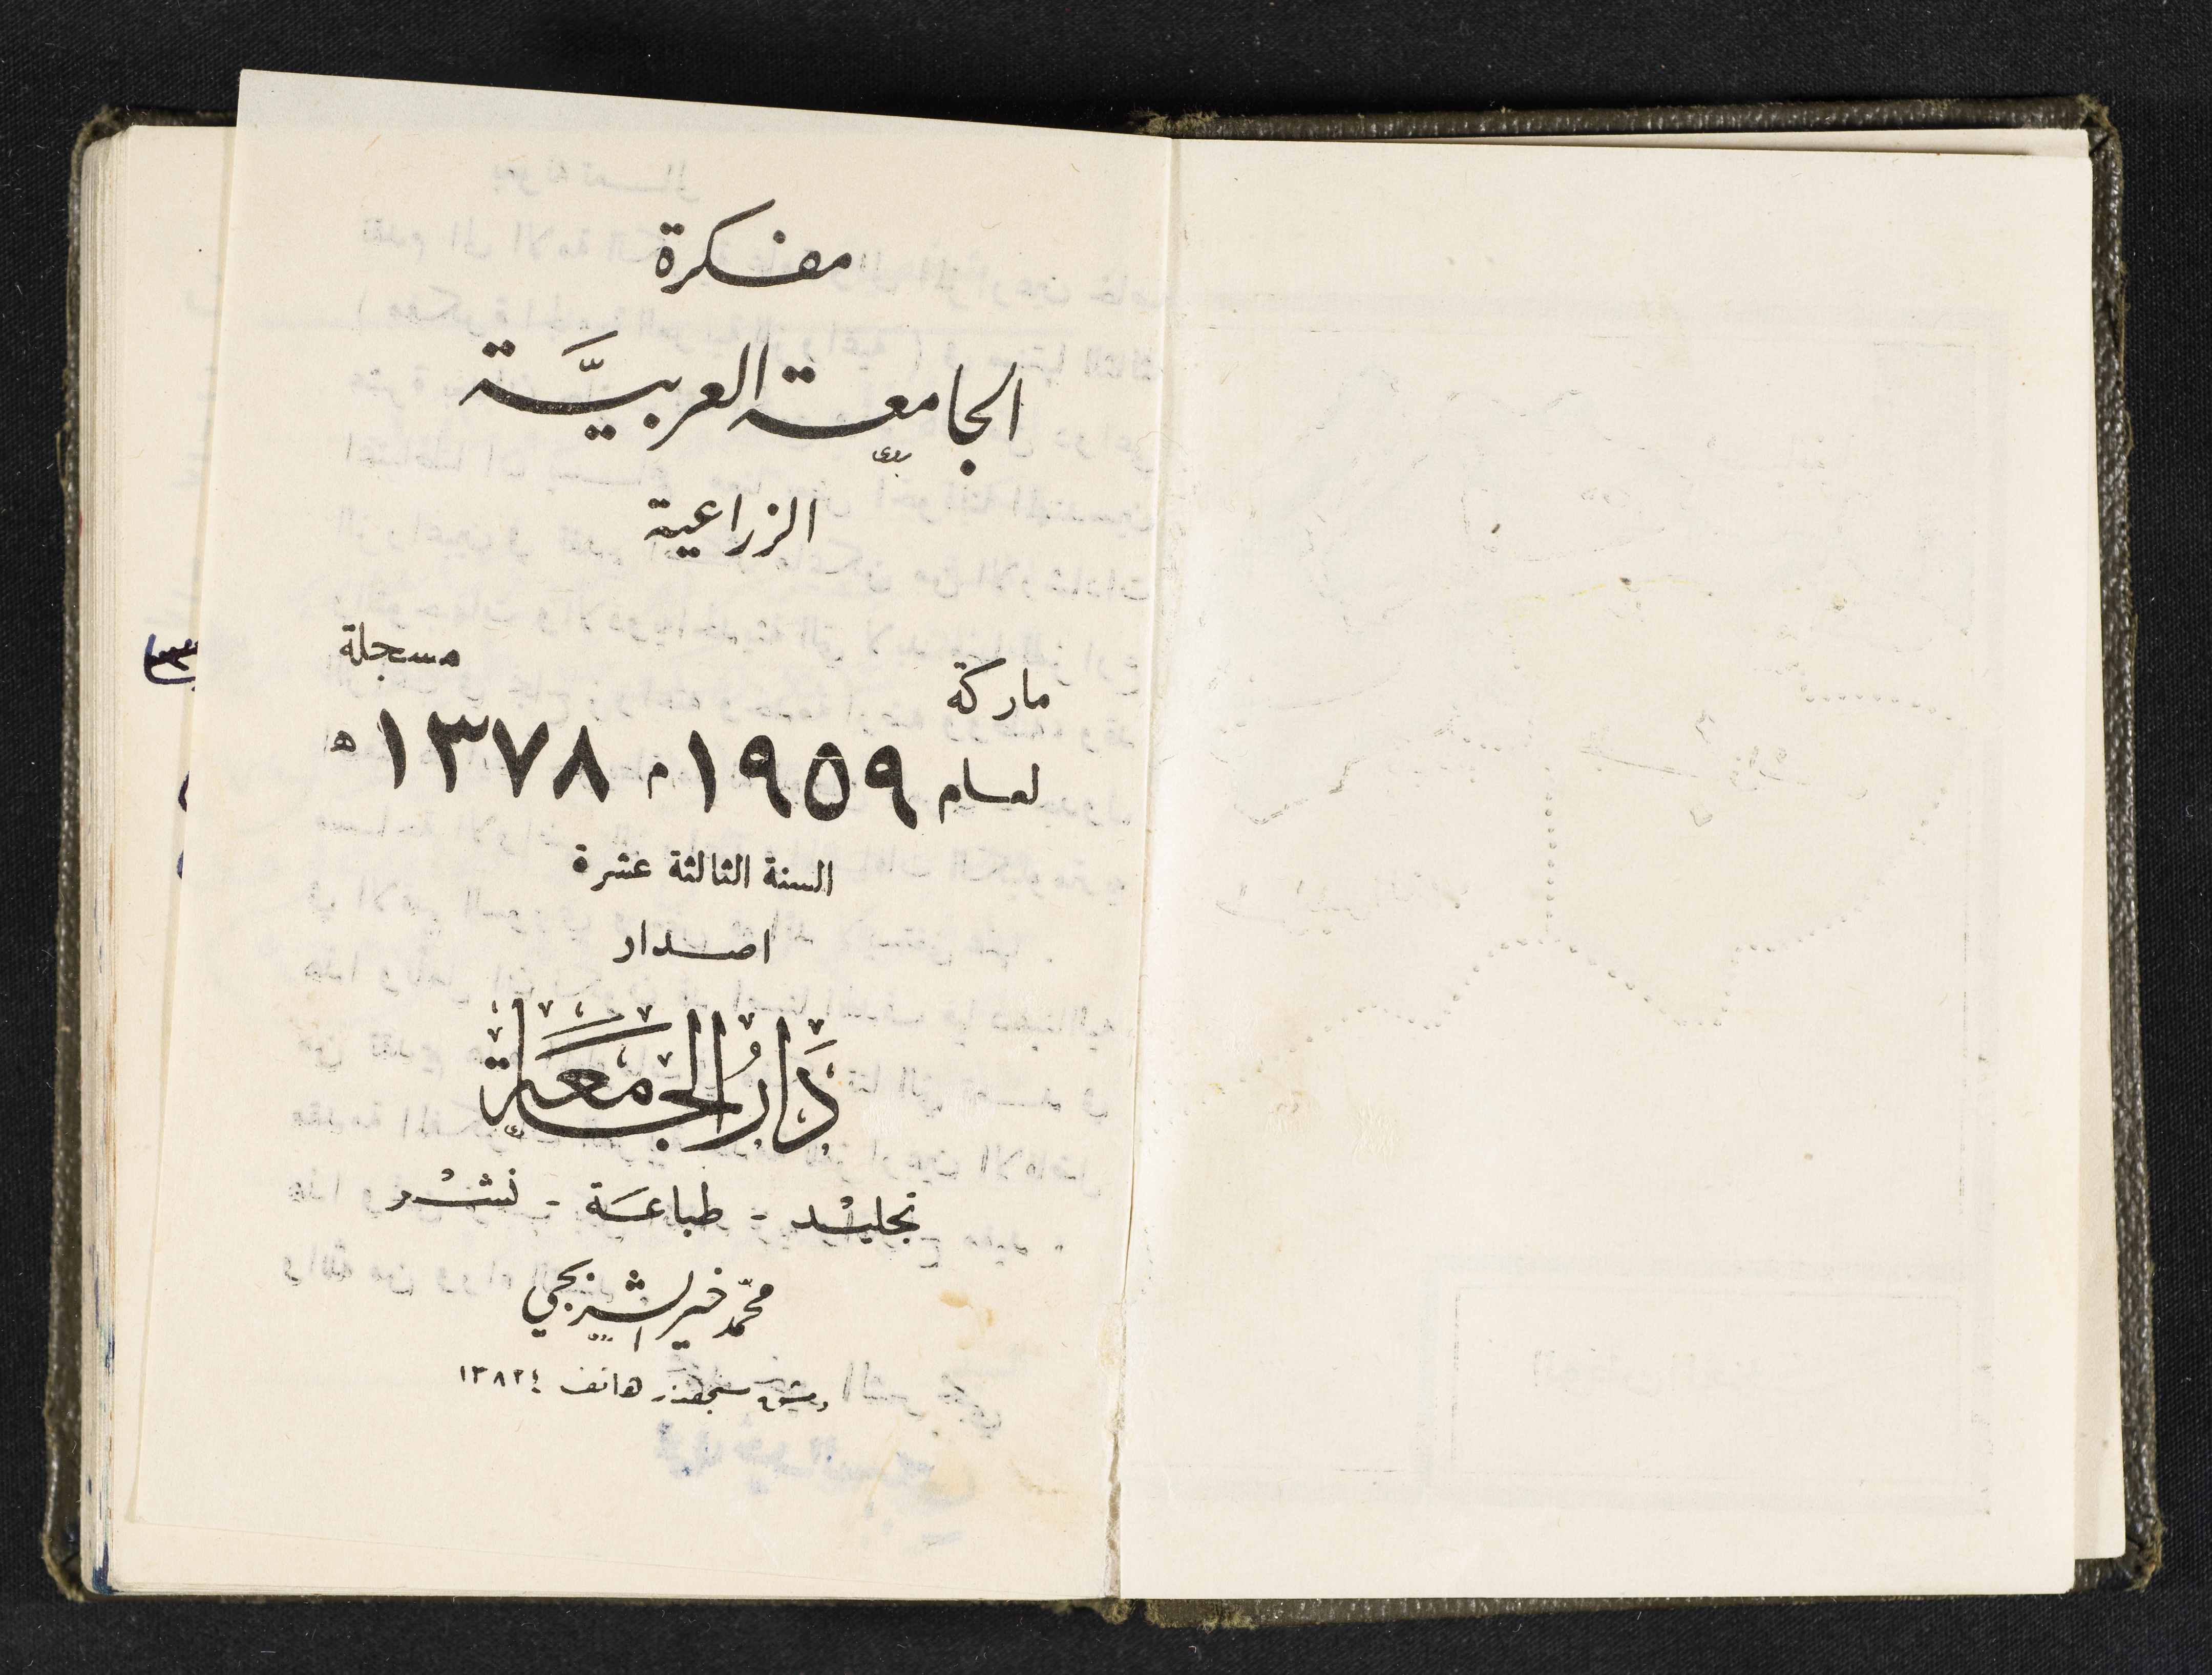 مفكرة
الجامعة العربيَّة
الزراعية
ماركة مسجلة
لعام ١٩٥٩ م ١٣٧٨ ھ
السنة الثالثة عشرة
اصدار
دَارُ الجَامِعَة
تجليْد - طباعَة - نشْر
محمّد خير الشربجي
دمشق سنجقدار هاتف ١٣٨٢٤